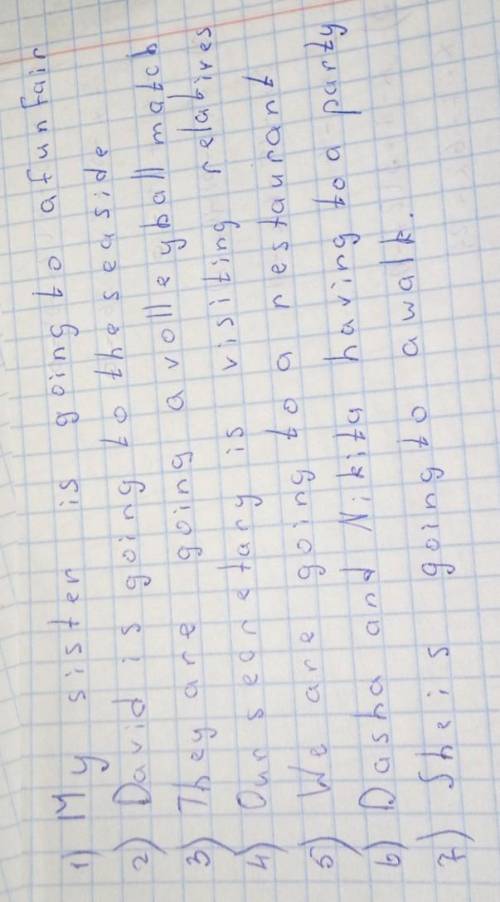 1) My sister is going to a funfair
2) David is going to the seaside
3) They are going a volleyball match
4) Our secretary is visiting relatires
5) We are going to a restaurant
6) Dasha and Nikita having to a party
7) She is going to a walk.